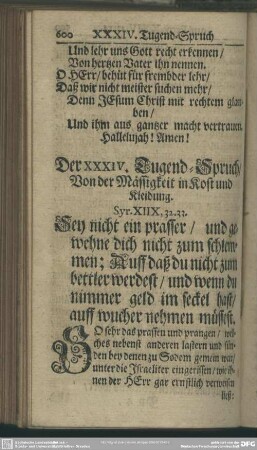 600 XXXIV. Tugend-Spruch
Und lehr uns Gott recht erkennen/
Von hertzen Vater ihn nennen.
O HErr/ behüt für frembder lehr/
Daß wir nicht meister suchen mehr/
Denn JEsum Christ mit rechtem glau-
ben/
Und ihm aus gantzer macht vertrauen.
Hallelujah! Amen!
Der XXXIV. Tugend-Spruch/
Von der Mässigkeit in Kost und
Kleidung.
Syr. XIIX, 32. 33.
Sey nicht ein prasser/ und ge-
wehne dich nicht zum schlem-
men; Auff daß du nicht zum
bettler werdest/ und wenn du
nimmer geld im seckel hast/
auff wucher nehmen müssest.
SO sehr das prassen und prangen/ wel-
ches nebenst anderen lastern und sün-
den bey denen zu Sodem gemein war/
unter die Israeliter eingerissen/ wie ih-
nen der HErr gar ernstlich verweisen
DFG